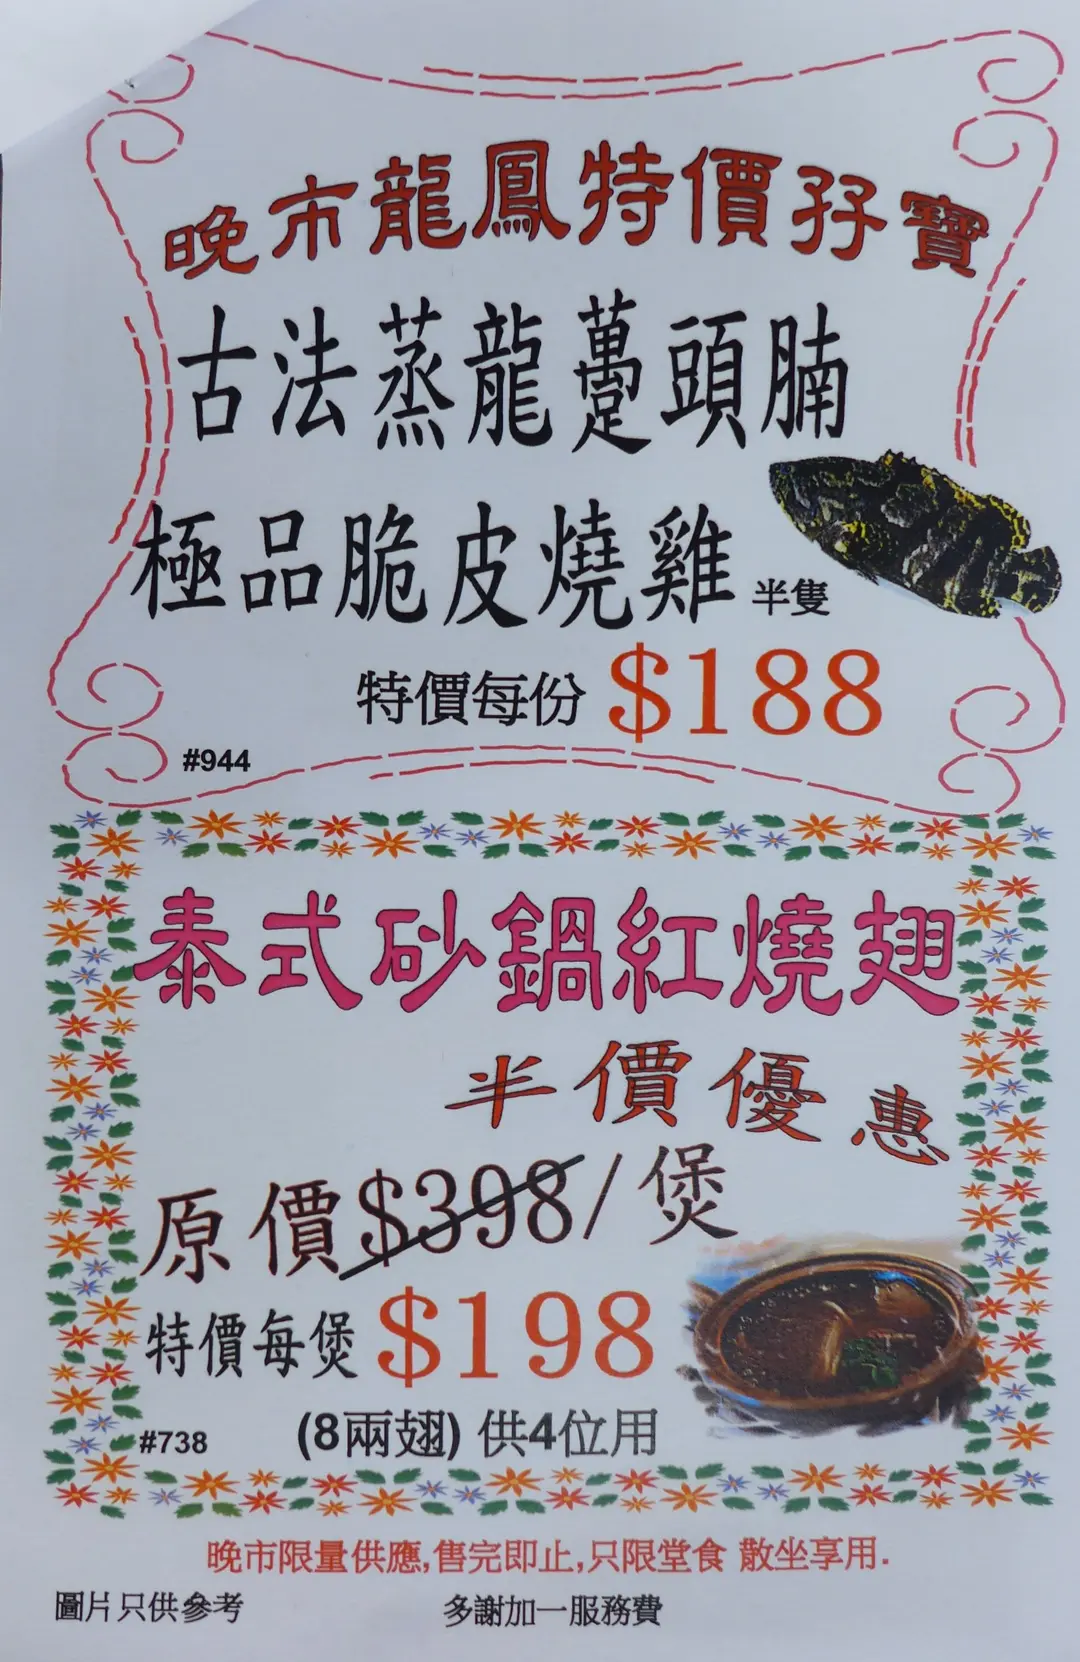 晚市龍鳳特價孖寶
古法蒸龍躉頭腩
極品脆皮燒雞 半隻
特價每份 $188
#944
泰式砂鍋紅燒翅
半價優惠
原價$398/煲
特價每煲 $198
#738 (8兩翅) 供4位用
晚市限量供應,售完即止,只限堂食 散坐享用.
圖片只供參考 多謝加一服務費